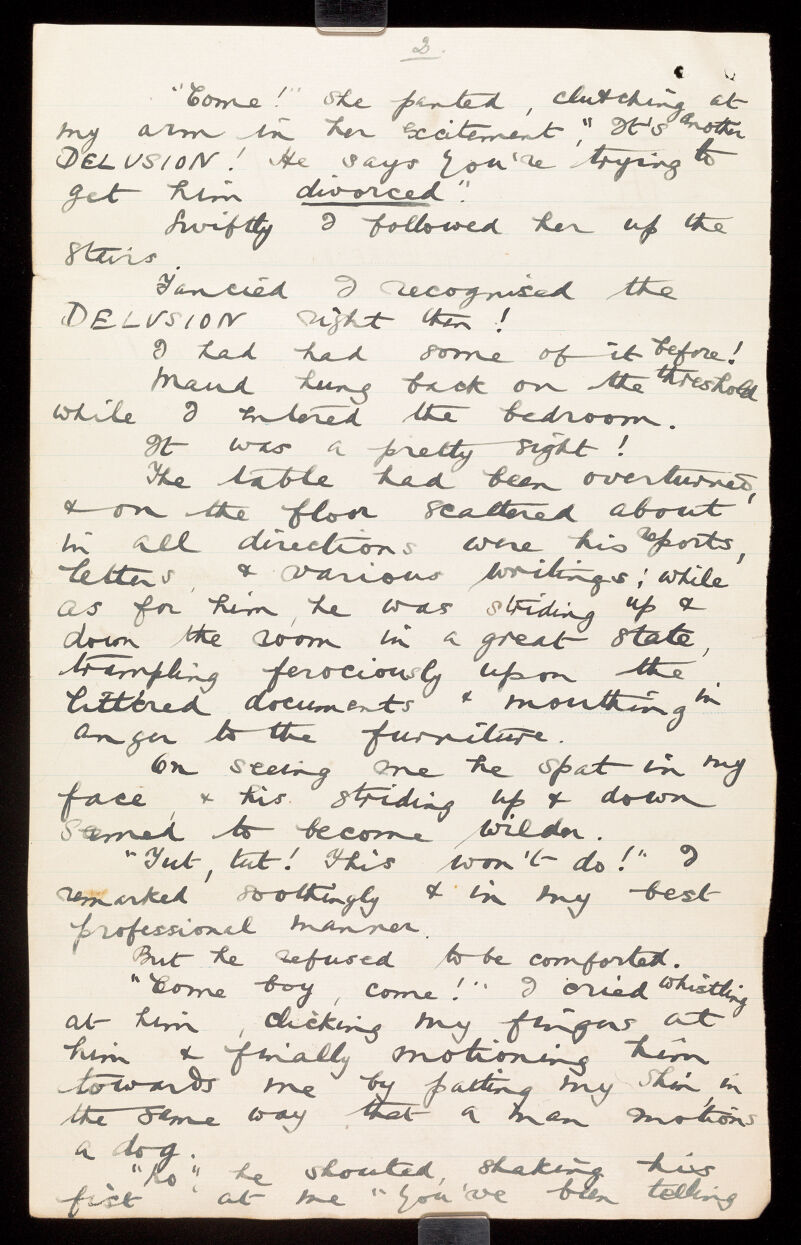 2.
"Come!" she panted, clutching at
my arm in her excitement, "It's another
DELUSION! He says you're trying to
get him divorced".
Swiftly I followed her up the
stairs.
Fancied I recognised the
DELUSION right then!
I had had some of it before!
Maud hung back on the threshold
while I entered the bedroom.
It was a pretty sight!
The table had been overturned,
& on the floor scattered about
in all directions were his reports,
letters, & various writings; while
as for him, he was striding up &
down the room in a great state,
trampling ferociously upon the
littered documents & mouthing in
anger to the furniture.
On seeing me he spat in my
face, & his striding up & down
seemed to become wilder.
"Tut, tut! This won't do!" I
remarked soothingly & in my best
professional manner.
But he refused to be comforted.
"Come boy, come!" I cried whistling
at him, clicking my fingers at
him & finally motioning him
towards me by patting my shin, in
the same way that a man motions
a dog.
"No", he shouted, shaking his
fist at me "You've been telling